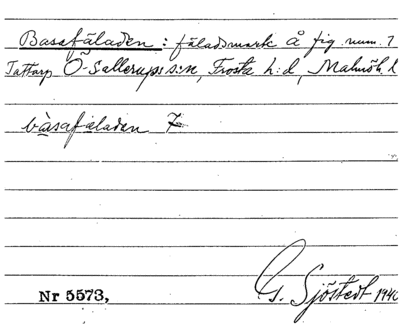 Basafäladen: fäladsmark å fig. num. 7
Tattarp Ö-Sallerups s:n, Frosta h:d, Malmöh. l
bàsafäladen 7
G. Sjöstedt 1940
Nr 5573,